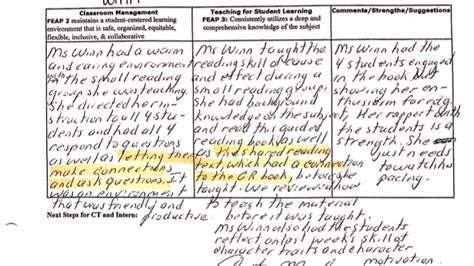 Winn
Classroom Management
FEAP 2 maintains a student-centered learning
environment that is safe, organized, equitable,
flexible, inclusive, & collaborative
Ms Winn had a warm
and caring environment
with the small reading
group she was teaching.
She directed her in-
struction to all 4 stu-
dents and had all 4
respond to questions
as well as letting them
make connections
and ask questions. It
was an environment
that was friendly and
productive.
Teaching for Student Learning
FEAP 3: Consistently utilizes a deep and
comprehensive knowledge of the subject
Ms Winn taught the
reading skill of cause
and effect during a
small reading group.
She had background
knowledge on the subject,
and read this guided
reading book as well
The shared reading
text which had a connection
to the GR book, before she
taught. We reviewed how
to teach the material
before it was taught.
Ms Winn also had the students
reflect on last week's skill of
character traits and character
motivation.
Comments/Strengths/Suggestions
Ms Winn had the
4 students engaged
in the book
showing her en-
thusiasm for rdg.
Her rapport with
the students is a
strength. She
just needs
to watch her
pacing.
Next Steps for CT and Intern: